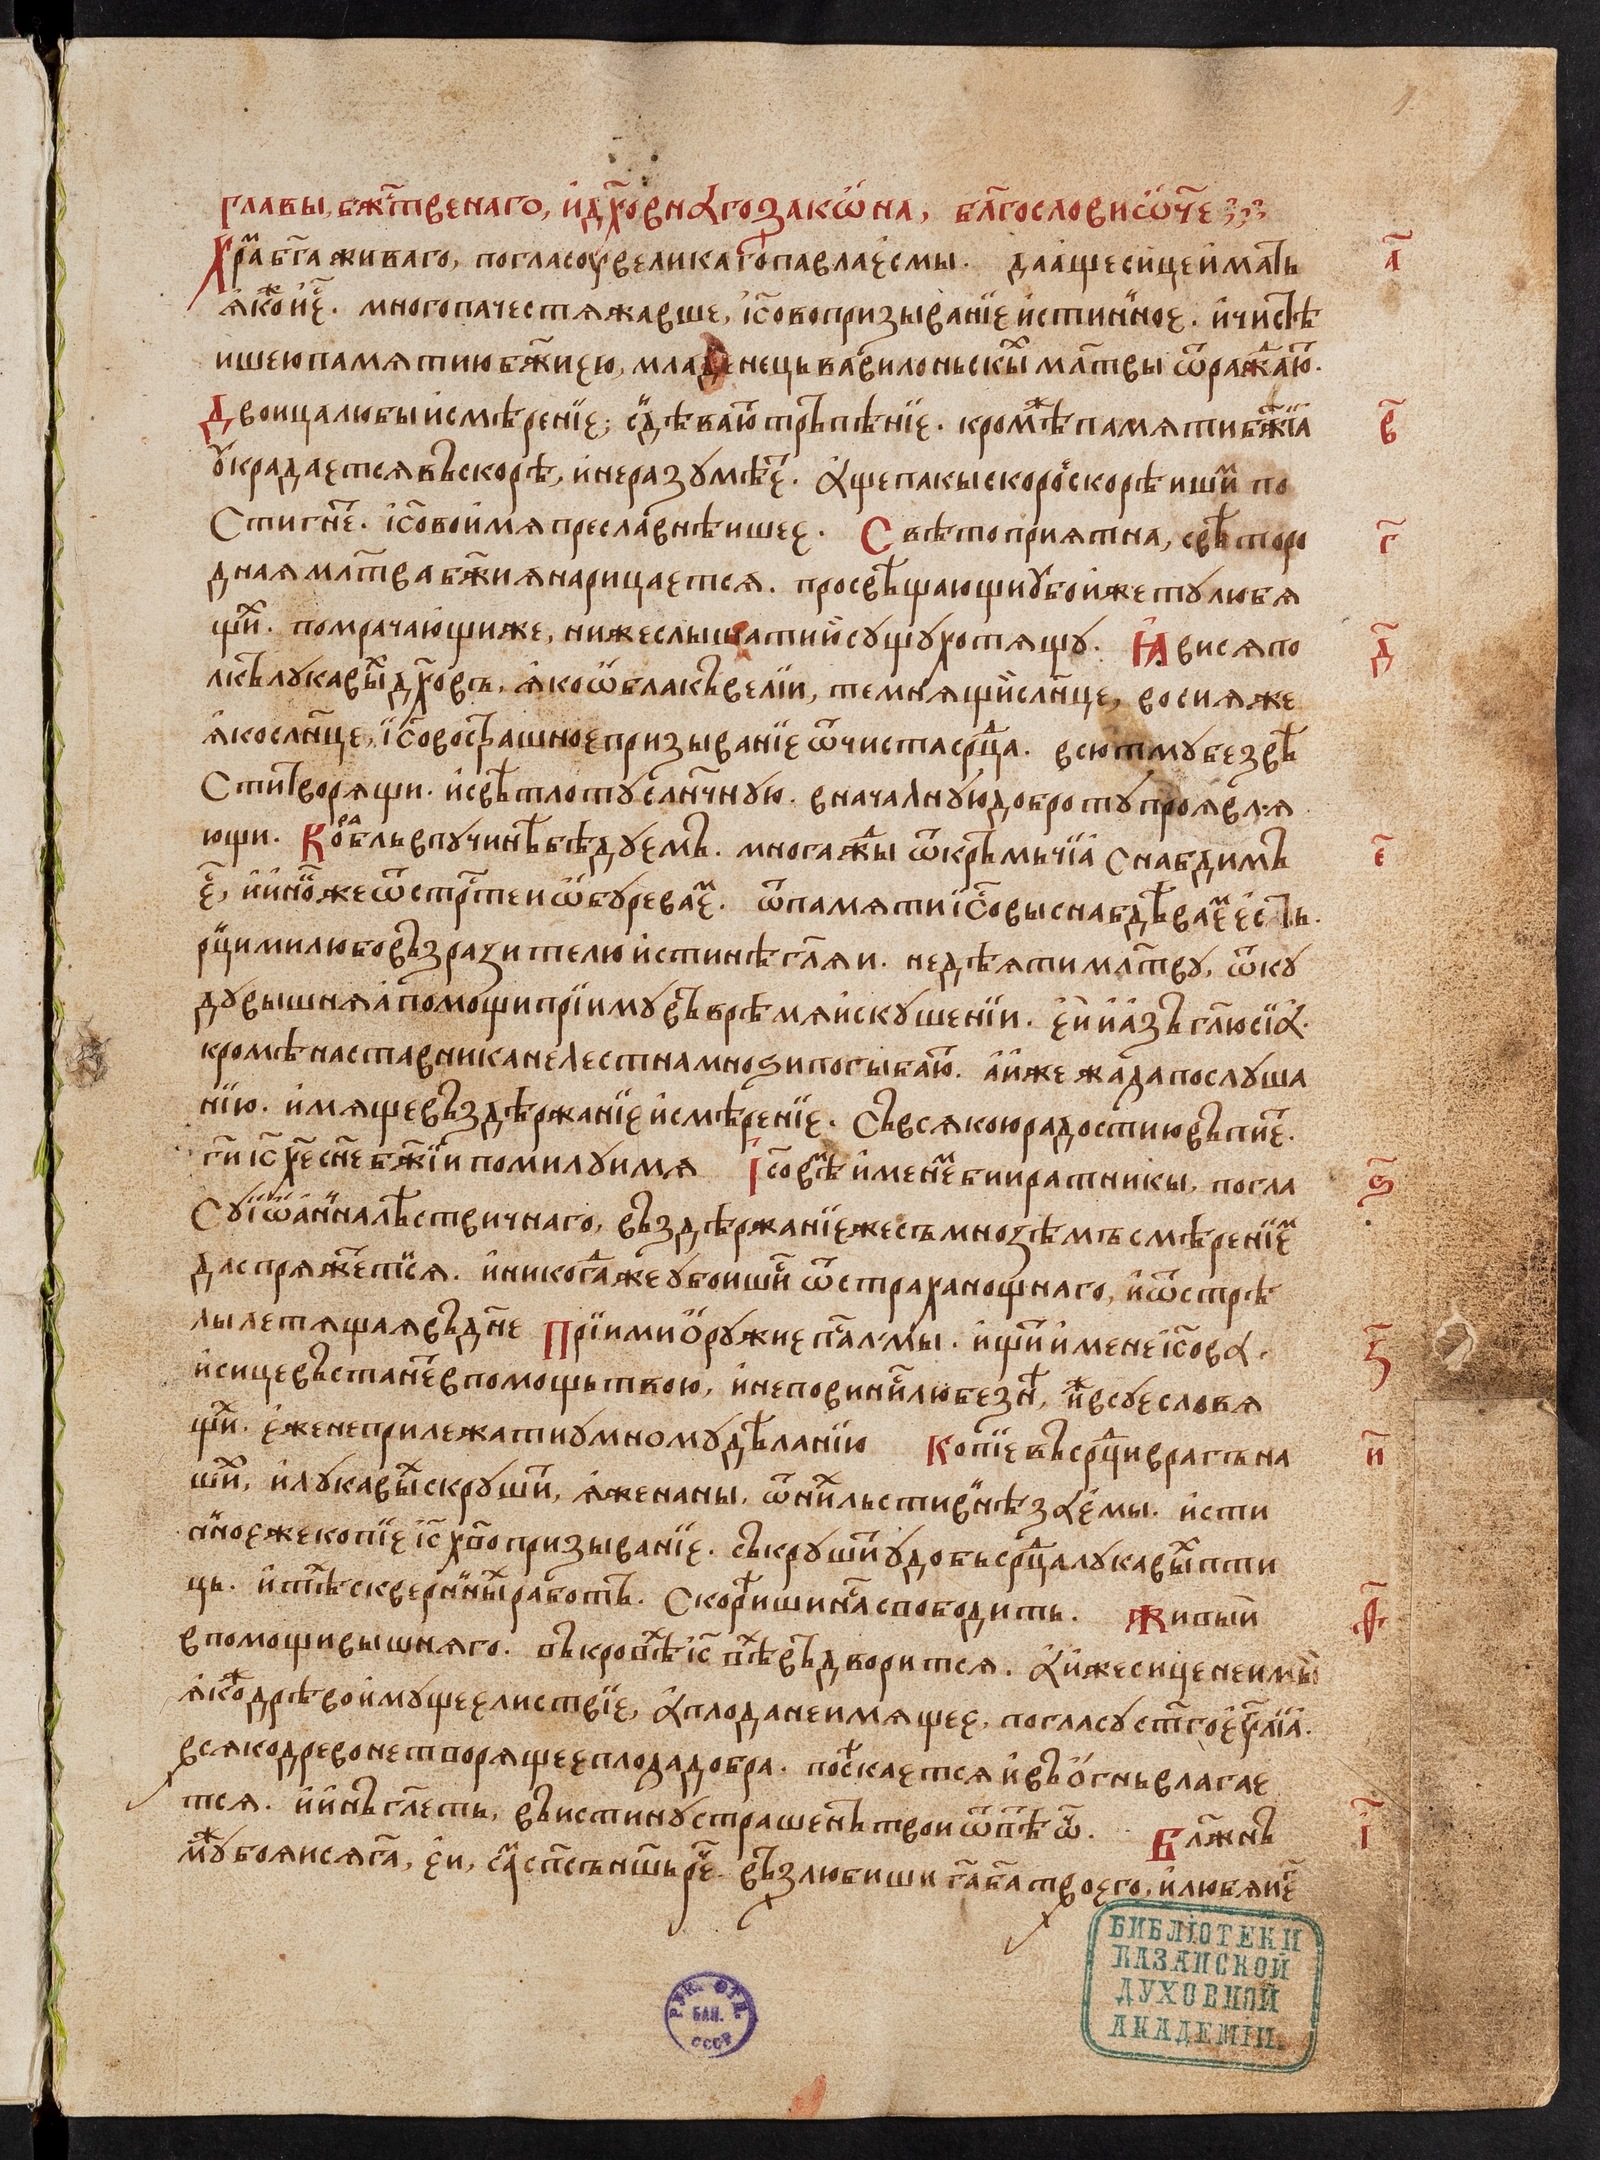 главы, бж҃твенаго, и҆ дх҃овнаго закѡ́на, бл҃гослови ѡ҃че
а҃
хра́м бг҃а живаго, по гласоу великаго павла е҆смы. да аще сице и҆мать
ꙗ҆коже и҆ е҆с. много паче стяжавше, і҆с҃ово призыванїе и҆стин̾ное. и҆ чистѣ
ишею памятию бж҃иею, младенець вавилоньскых мл҃твы ѿражают.
в҃
Двоица любы и҆ смѣренїе; съдѣвают трьпѣнїе. кромѣ же памяти бж҃їа
оу҆крадается въскорѣ, и҆ не разумѣет. аще пакы скоро скорѣишим по
стигнет. і҆с҃ово и҆мя преславнѣишее. Свѣтоприятна, свѣторо
г҃
дная мл҃тва бж҃ия нарицается. просвѣщающи оу҆бо и҆же ту любя
щих. помрачающи же, ниже слышати ю҆ сущу хотящу. Навися по
д҃
лкъ лукавых дх҃овъ. ꙗ҆ко ѡ҆блакъ велїи, темня щи слн҃це, восия же
ꙗ҆ко слн҃це, і҆с҃ово страшное призыванїе ѿ чиста срд҃ца. всю тму безвѣ
сти творящи. и҆ свѣтлоту слн҃чную. вначалную доброту проявля
ющи. Корабль в пучинѣ бѣдуемъ. многажды ѿ кръмьчїа снабдим
е҃
е҆с, и҆ и҆ного же ѿ стр҃теи ѡ҆буреваем. ѿ памяти і҆с҃овы снабдѣваем е҆сть.
рци ми любовъзразителю и҆стинѣ гл҃яи. не дѣяти мл҃тву, ѿку
ду вышняа помощи прїиму въ врѣмя и҆скушенїи. е҆и и҆ азъ гл҃ю сїа.
кромѣ наставника нелестна мнози погыбают. а и҆же жада послуша
нїю. и҆мяще въздръжанїе и҆ смѣренїе. съ всякою радостию въпиет.
ги҃ і҆с҃ хе҃ сн҃е бж҃їи помилуи мя І҆с҃овѣм и҆менем бии ратники, по гла
ѕ҃
су і҆ѡ҆ан̾на лѣствичнаго, въздръжанїе же съ мноѕѣмъ смѣренїем
да спряжется. и҆ никогда же у боишися ѿ страха нощнаго, и҆ ѿ стрѣ
лы летящая въ дн҃е Прїими о҆ружие псал̾мы. и҆ щит и҆мене і҆с҃ова.
з҃
и҆ сице въстанет в помощь твою, и҆ не повинися любезнѣ, и҆же всуесловя
щих. е҆же не прилежати умному дѣланїю Копїе въ срд҃ци врагъ на
и҃
ших, и҆ лукавых скрушит, ꙗ҆же на ны, ѿ них льстивнѣ зуемы. и҆сти
нное же копїе і҆с҃ хв҃о призыванїе. съкрушит удобь срд҃ца лукавых пти
ць. и҆ тѣх скверн̾ных работъ. Скорѣиши нас свободитъ. Живыи
ѳ҃
в помощи вышняго. въ кровѣх і҆с҃ хв҃ѣх въдворится. а и҆же сице не имыи
ꙗ҆коже дрѣво и҆мущее листвїе, а плода не имящее, по гласу ст҃го е҆ѵ҃лїа.
всяко древо не творящее плода добра. посѣкается и҆ въ о҆гнь влагае
тся. и҆ инъ гл҃етъ, въ истину страшенъ твои ѿвѣт. Бл҃жнъ
і҃
муж бояися га҃, е҆и, сам сп҃съ нш҃ъ рече. възлюбиши га҃ ба҃ твоего, и҆ любяи
БИБЛІОТЕКИ
КАЗАНСКОЙ
ДУХОВНОЙ
АКАДЕМІИ.
РУК. ОТД.
БАН.
СССР